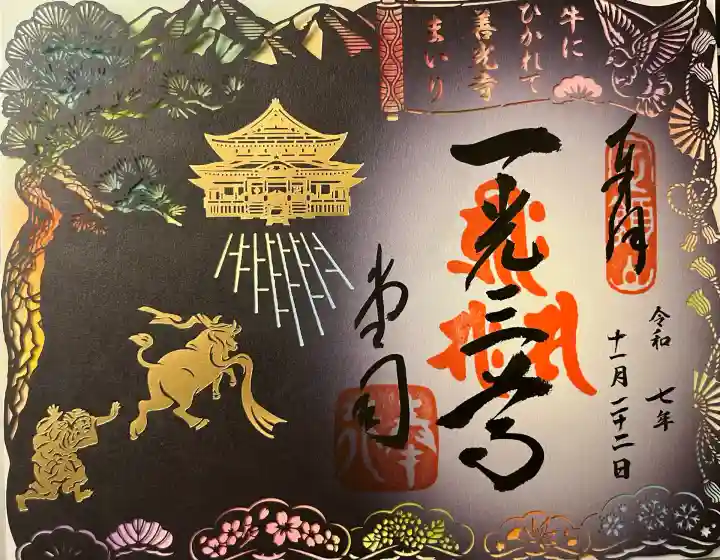 牛に
ひかれて
善光寺
まいり
奉拝
令和 七年
十一月二十二日
一光三尊
堂司